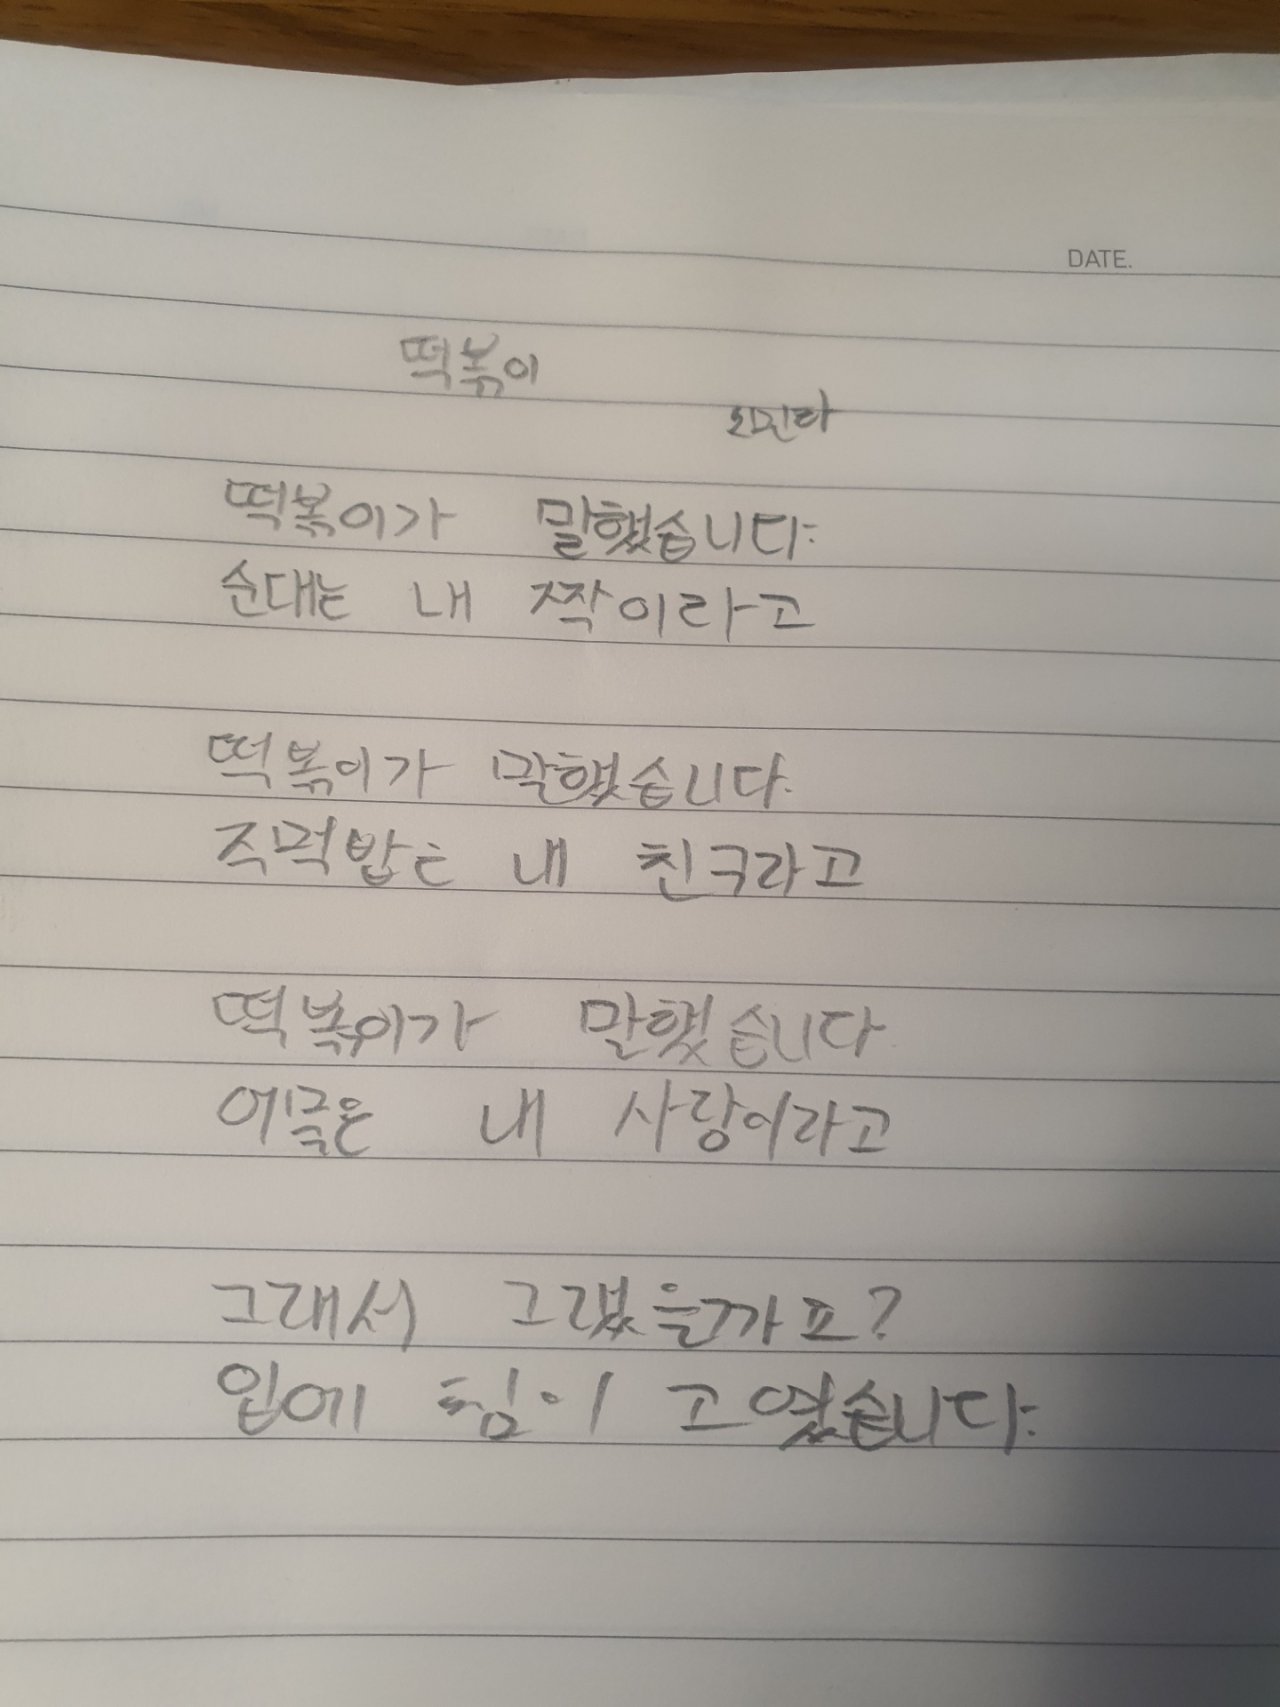 DATE.
떡볶이
떡볶이가 말했습니다.
순대는 내 짝이라고
떡볶이가 말했습니다.
주먹밥은 내 친구라고
떡볶이가 말했습니다
어묵은 내 사랑이라고
그래서 그랬을까요?
입에 침이 고였습니다.